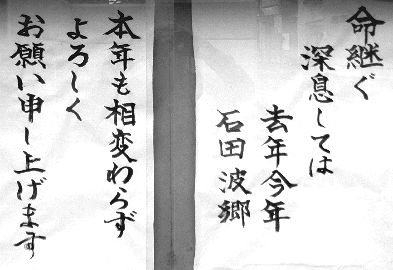 命継ぐ
深息しては
去年今年
石田波郷
本年も相変わらず
よろしく
お願い申し上げます